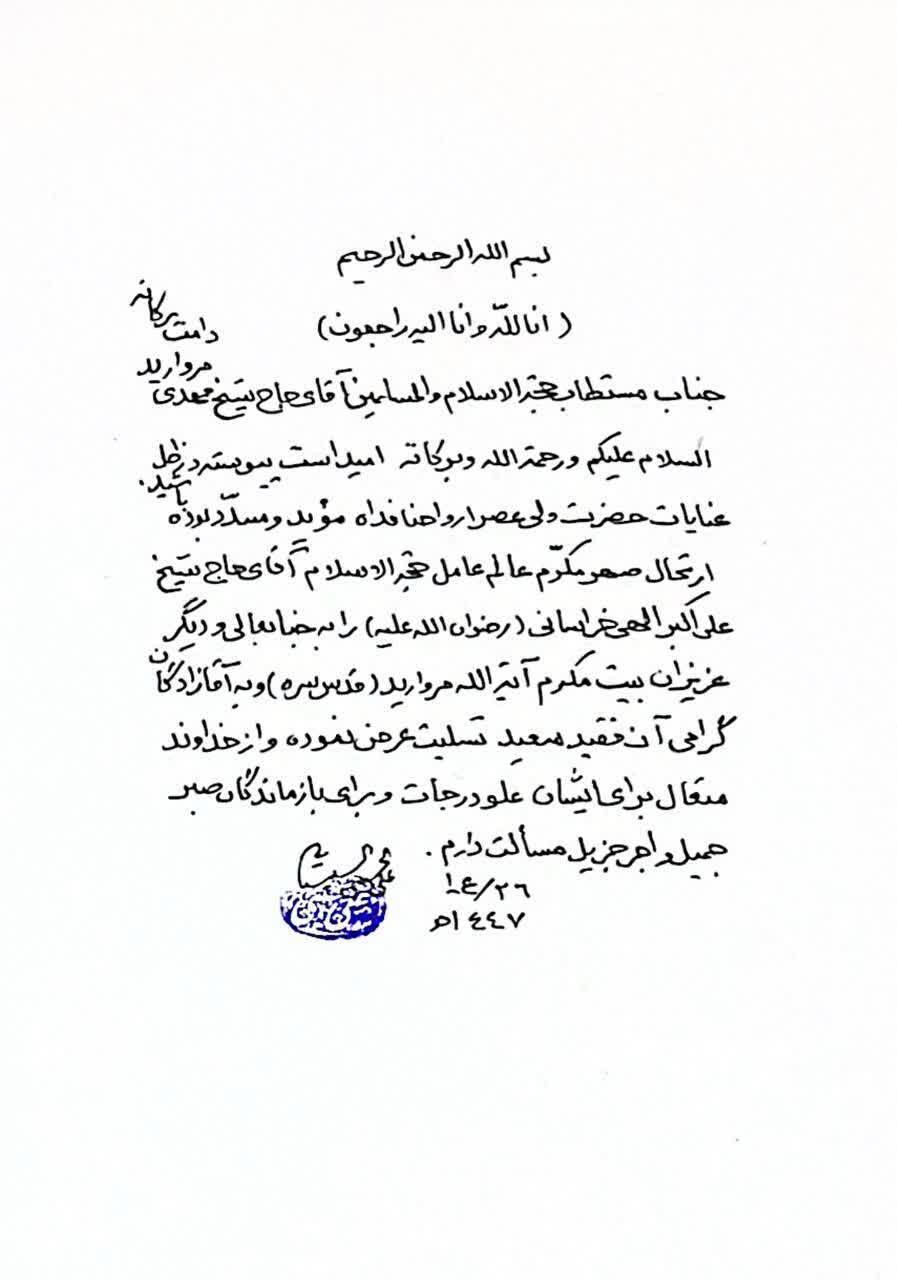 بسم الله الرحمن الرحیم
(انا للّه و انا الیه راجعون)
جناب مستطاب حجة الاسلام والمسلمین آقای حاج شیخ مهدی مروارید دامت برکاته
السلام علیکم ورحمة الله وبرکاته امید است پیوسته در ظل
عنایات حضرت ولی عصر ارواحنا فداه مؤید و مسدّد بوده باشید.
ارتحال صهر مکرّم عالم عامل حجة الاسلام آقای حاج شیخ
علی اکبر الهی خراسانی (رضوان الله علیه) را به جنابعالی و دیگر
عزیزان بیت مکرم آیة الله مروارید (قدس سره) و به آقازادگان
گرامی آن فقید سعید تسلیت عرض نموده و از خداوند
متعال برای ایشان علو درجات و برای بازماندگان صبر
جمیل و اجر جزیل مسألت دارم.
١٤٤٧ه